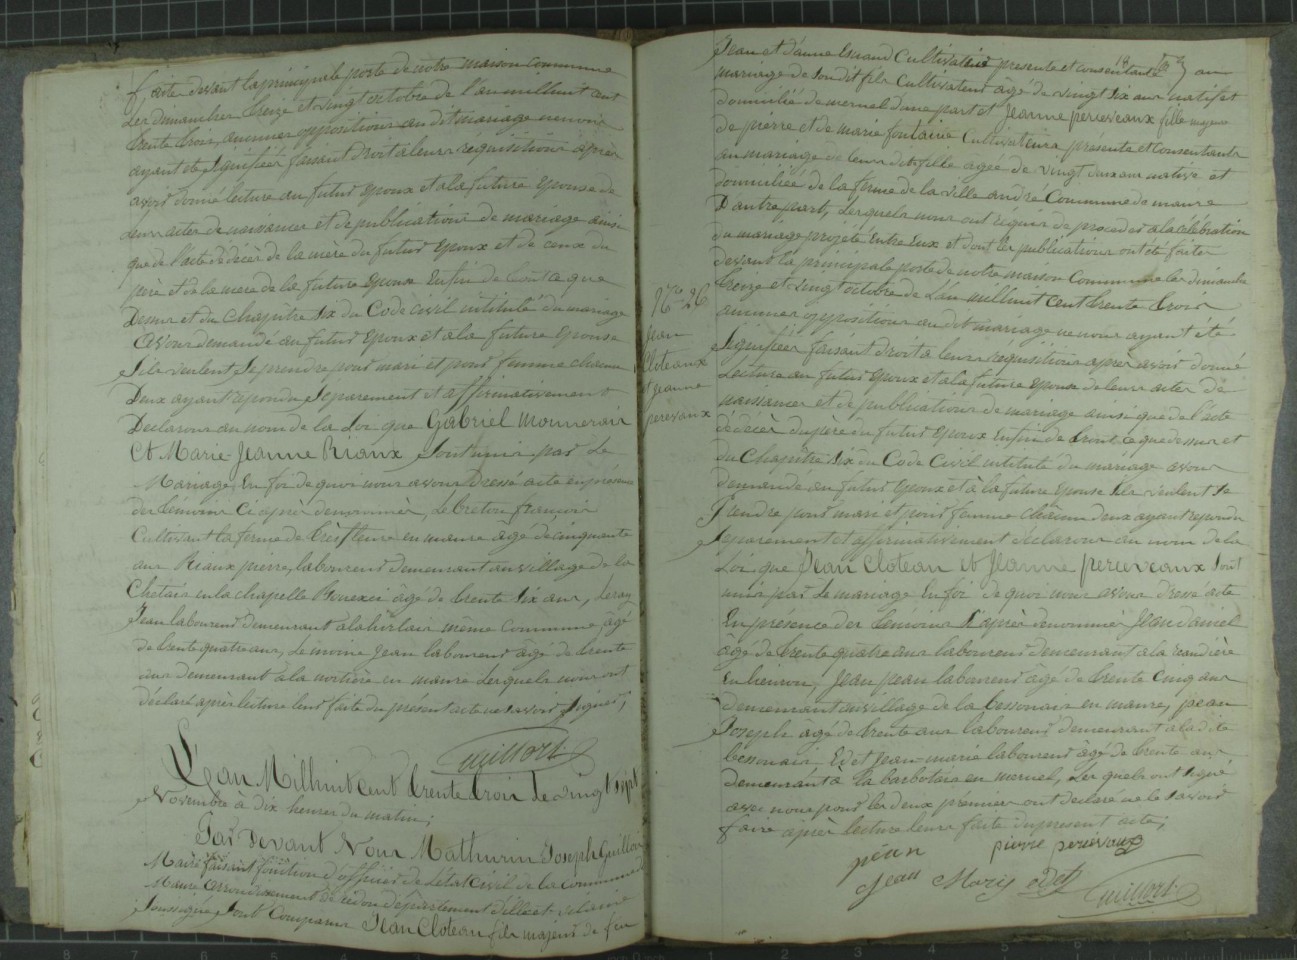 faite devant la principale porte de notre maison commune
Les dimanches treize et vingt octobre de l'an mil huit cent
trente trois, aucunes oppositions au dit mariage ne nous
ayant été signifiées faisant droit à leurs réquisitions après
avoir donné lecture au futur époux et à la future épouse de
leurs actes de naissances et de publications de mariage ainsi
que de l'acte de décès de la mère du futur époux et de ceux du
père et de la mère de la future épouse Enfin de tout ce que
Dessus et du Chapitre six du Code civil intitulé du mariage
avons demandé au futur époux et à la future épouse
S'ils veulent se prendre pour mari et pour femme chacun
Deux ayant repondu séparément et affirmativement
Declarons au nom de la Loi que Gabriel
Et Marie Jeanne Riaux sont unis par le
Mariage. En foi de quoi nous avons Dressé acte en présence
des témoins ci après denommés, Le breton françois
Cultivant la ferme de en maure âgé de cinquante
ans Riaux pierre, laboureur demeurant au village de la
en la chapelle Bouexic âgé de trente six ans,
Jean laboureur demeurant à la même Commune âgé
de trente quatre ans, Le moine Jean laboureur âgé de trente
ans demeurant à la en maure Lesquels nous ont
déclaré après lecture leur faite du présent acte ne savoir signer,
Guillory
L'an Mil huit cent trente trois le vingt sept
Novembre à dix heures du matin;
Par Devant Nous Mathurin Joseph
Maire faisant fonction d'officier de l'état Civil de la commune de
Maure arrondissement de redon departement d'ille et vilaine
Soussigné Sont Comparus Jean Cloteau fils majeur de feu
Jean et d'anne Cultivatrice présente et consentante au
mariage de son dit fils Cultivateur âgé de vingt six ans natif et
domicilié de mernel d'une part et Jeanne perceveaux fille majeure
de pierre et de marie fontaine Cultivateurs présents et Consentants
au mariage de leur dite fille agée de vingt deux ans native et
domiciliée de la ferme de la ville andré Commune de maure
D'autre part, Lesquels nous ont requis de proceder à la célébration
du mariage projeté Entre Eux et dont les publications ont été faites
devant la principale porte de notre maison Commune les dimanches
treize et vingt octobre de L'an mil huit Cent trente trois
aucunes oppositions au dit mariage ne nous ayant été
signifiées faisant droit à leurs réquisitions après avoir donné
Lecture au futur époux et à la future épouse de leurs actes de
naissances et de publications de mariage ainsi que de l'acte
de décès du père du futur époux Enfin de tout ce que dessus et
du Chapitre six du Code Civil intitulé du mariage avons
demandé au futur époux et à la future épouse s'ils veulent se
Prendre pour mari et pour femme chacun deux ayant repondu
Séparément et affirmativement déclarons au nom de la
Loi que Jean Cloteau et Jeanne perceveaux sont
unis par le mariage En foi de quoi nous avons Dressé acte
En présence des témoins Ci après denommés Jean Daniel
âgé de trente quatre ans laboureur demeurant à la
En lieuron, Jean laboureur âgé de trente Cinq ans
demeurant au village de la bessonais en maure,
Joseph âgé de trente ans laboureur demeurant à la dite
bessonais, Jean-marie laboureur âgé de trente ans
demeurant à la barbotais en mernel, Lesquels ont signé
avec nous pour les deux premiers ont declaré ne le savoir
faire après lecture leur faite du present acte;
Nro 26
Jean
Cloteaux
et jeanne
perevaux
Jean Marie
pierre
Guillory